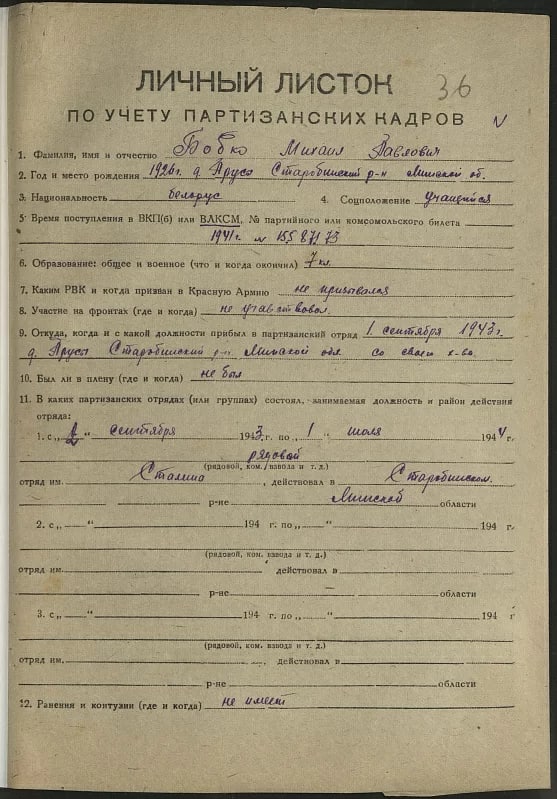 36
ЛИЧНЫЙ ЛИСТОК
ПО УЧЕТУ ПАРТИЗАНСКИХ КАДРОВ
1. Фамилия, имя и отчество Бобко Михаил Павлович
2. Год и место рождения 1926г. д. Прусы Старобинский р-н Минской об.
3. Национальность белорус 4. Соцположение учащийся
5. Время поступления в ВКП(б) или ВЛКСМ, № партийного или комсомольского билета
1941г. № 15587173
6. Образование: общее и военное (что и когда окончил) 7 кл.
7. Каким РВК и когда призван в Красную Армию не призывался
8. Участие на фронтах (где и когда) не участвовал
9. Откуда, когда и с какой должности прибыл в партизанский отряд 1 сентября 1943г.
д. Прусы Старобинский р-н Минской обл со своего х-ва.
10. Был ли в плену (где и когда) не был
11. В каких партизанских отрядах (или группах) состоял, занимаемая должность и район действия
отряда:
1. с „ “ сентября 1943 г. по „1“ июля 1944 г.
рядовой
(рядовой, ком. взвода и т. д.)
отряд им. Сталина, действовал в Старобинском
р-не Минской области
2. с „ “ 194 г. по „ “ 194 г.
(рядовой, ком. взвода и т. д.)
отряд им. , действовал в
р-не области
3. с „ “ 194 г. по „ “ 194 г
(рядовой, ком. взвода и т. д.)
отряд им. , действовал в
р-не области
12. Ранения и контузии (где и когда) не имеет